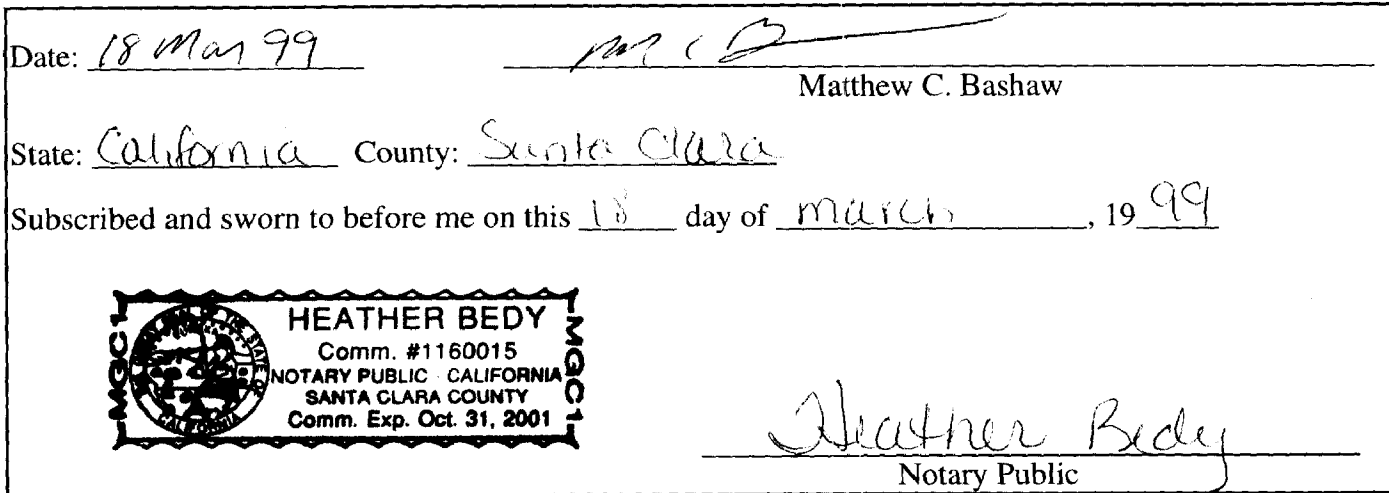 Date: 18 Mar 99
Matthew C. Bashaw
State: California County: Santa Clara
Subscribed and sworn to before me on this 18 day of march, 19 99
HEATHER BEDY
Comm. #1160015
NOTARY PUBLIC · CALIFORNIA
SANTA CLARA COUNTY
Comm. Exp. Oct. 31, 2001
MGC1
MGC1
Heather Bedy
Notary Public